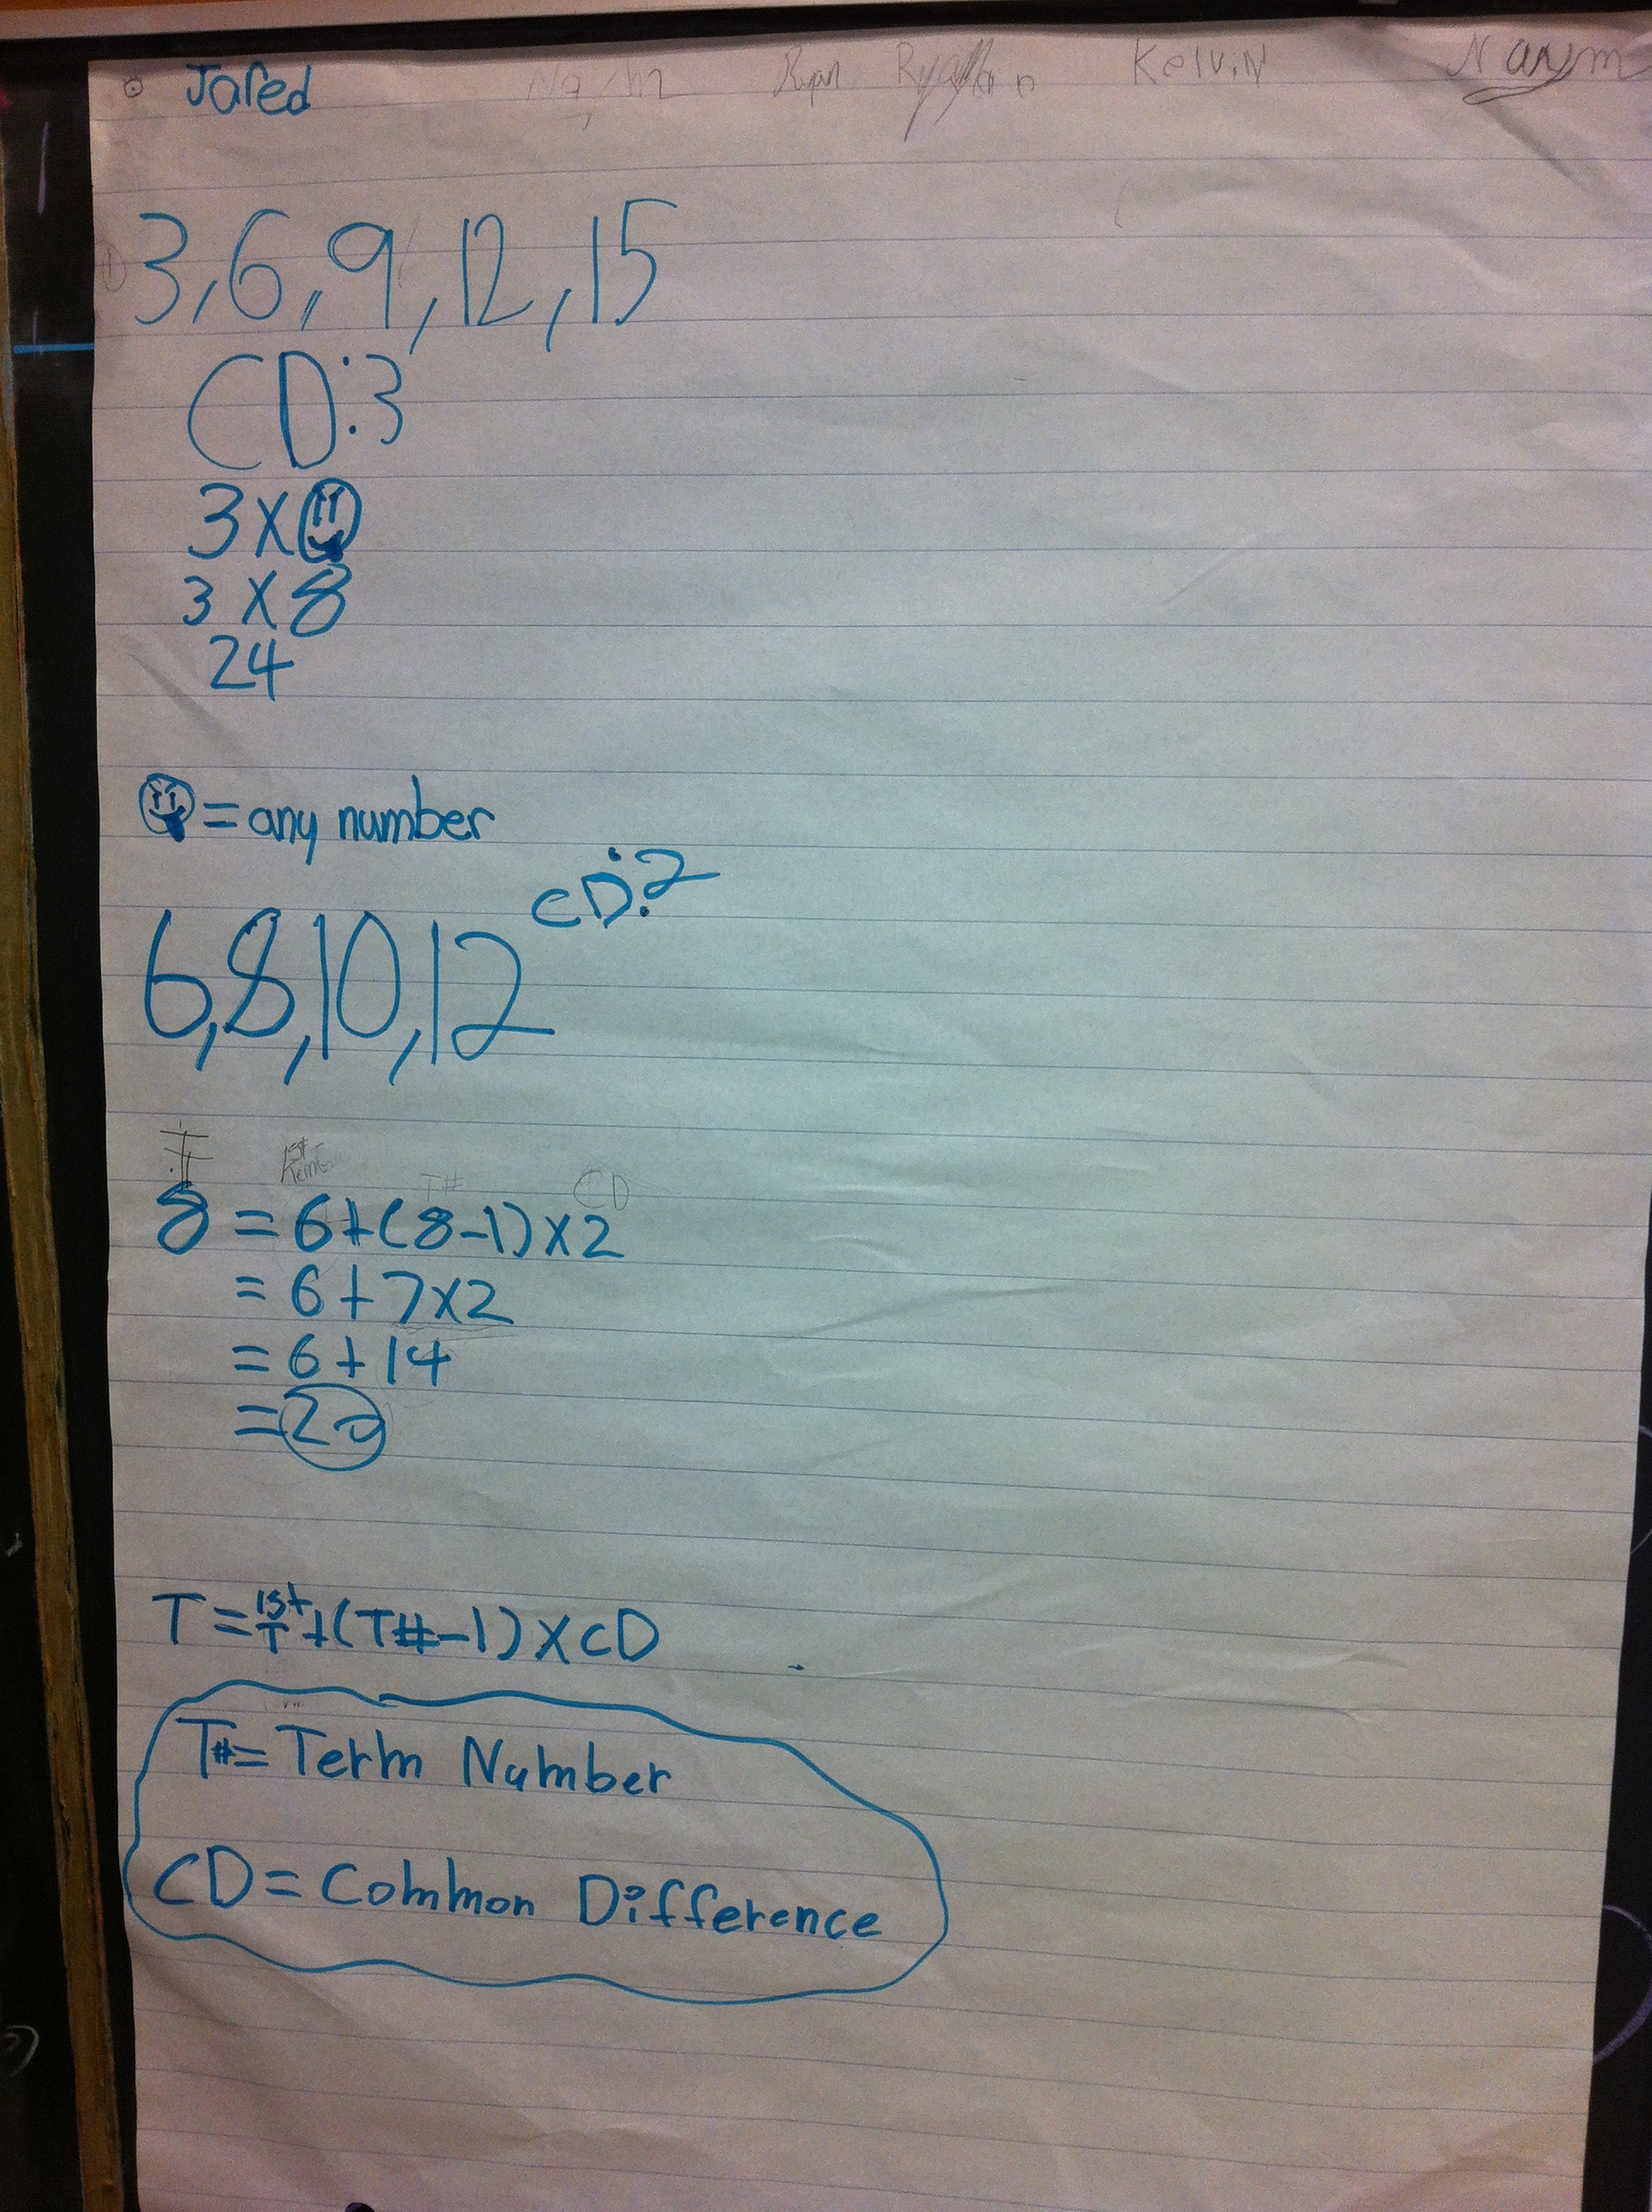 Jared Ryan Kelvin Naym
3,6,9,12,15
CD:3
3x☺
3x8
24
☺=any number
CD:2
6,8,10,12
1st Term T# CD
8=6+(8-1)x2
=6+7x2
=6+14
=20
T=1st T+(T#-1)xCD
T#=Term Number
CD=Common Difference